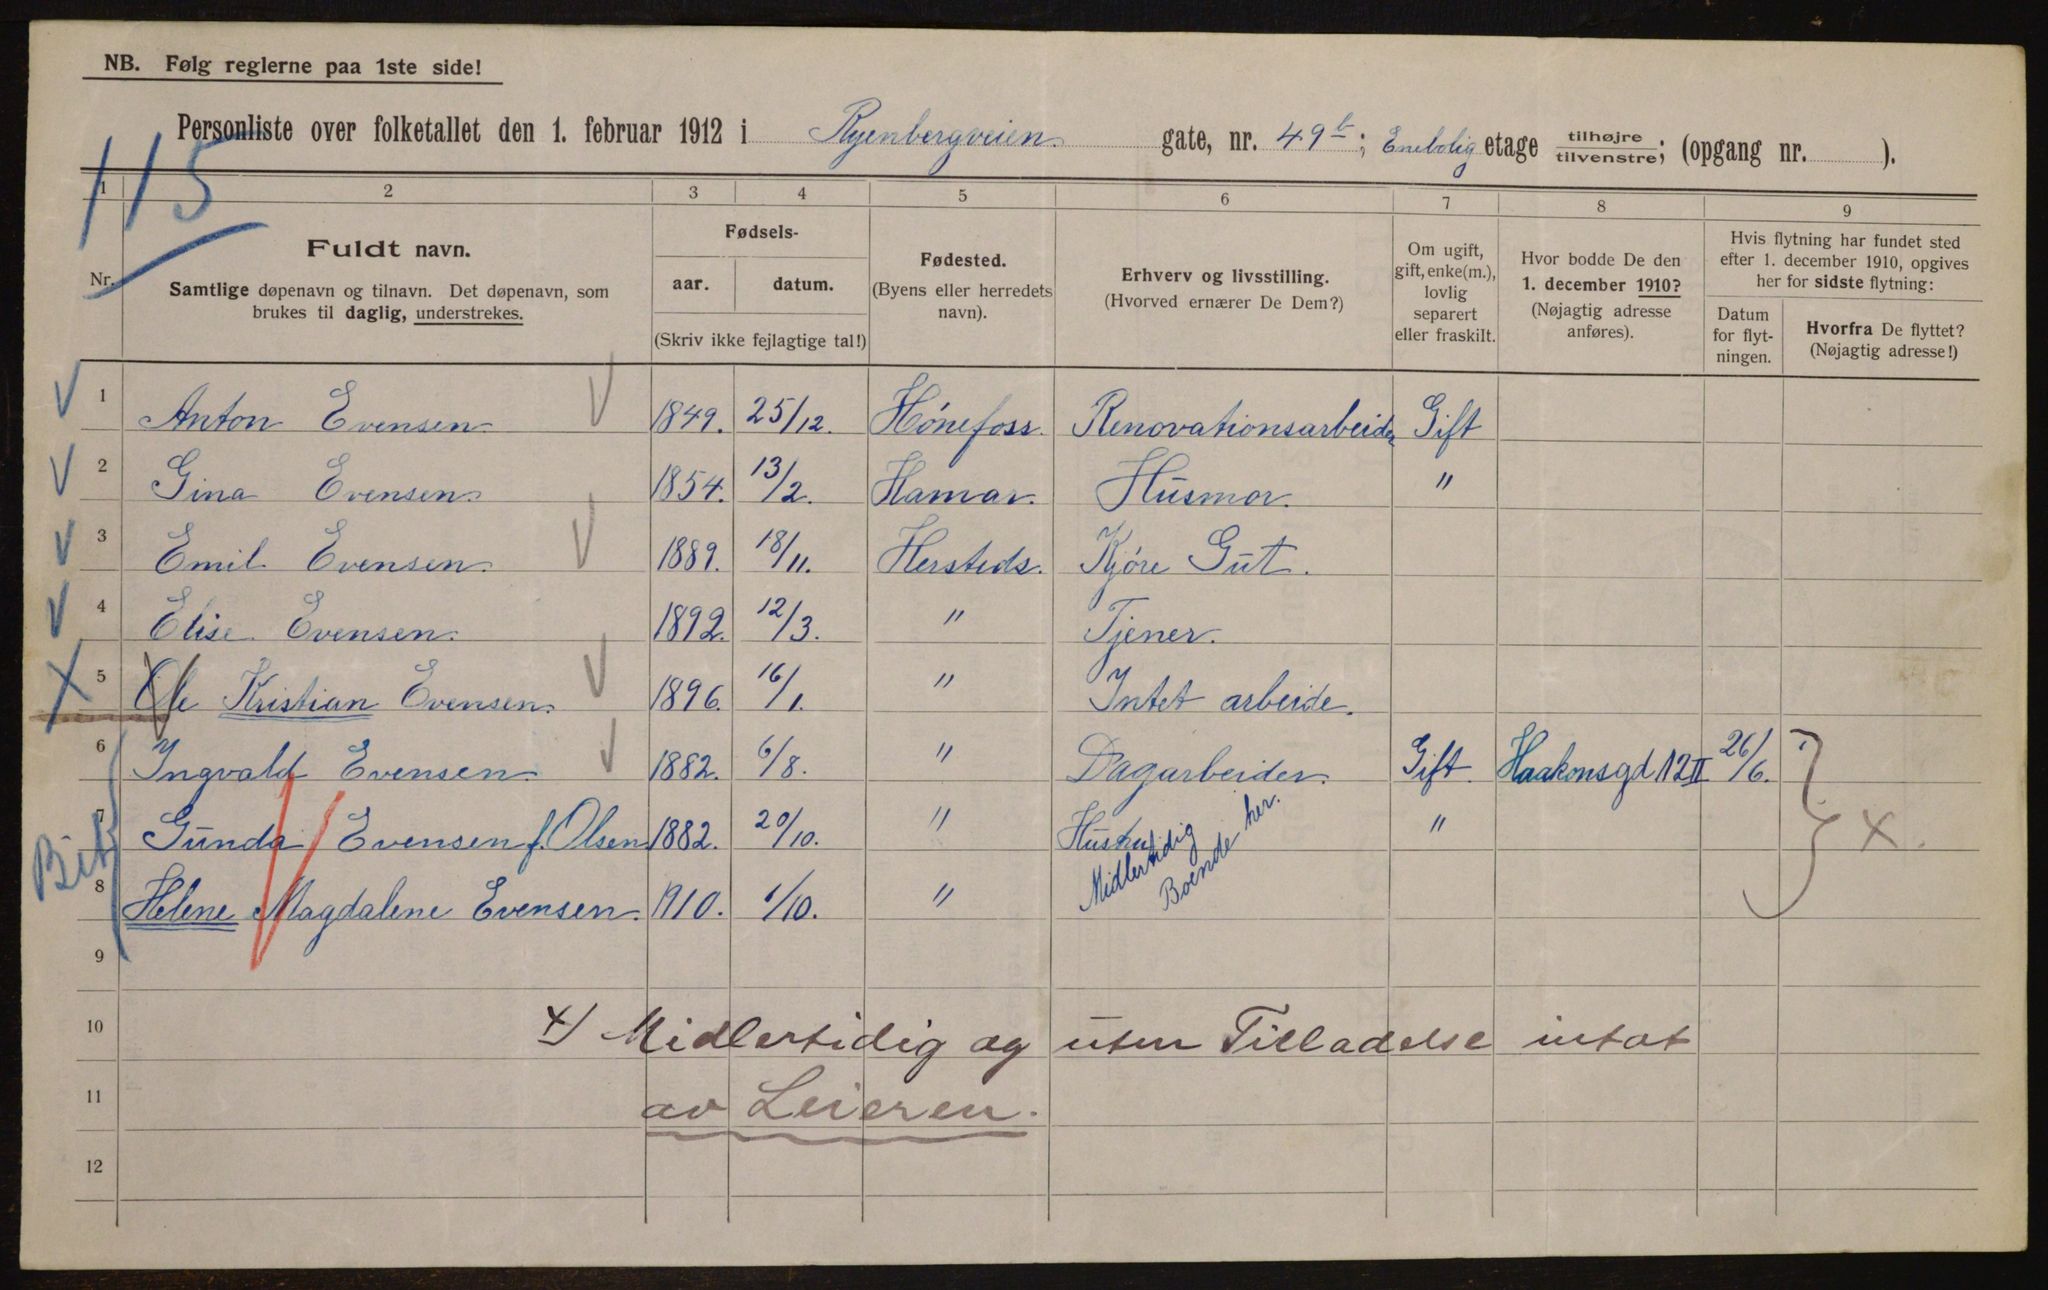 NB. Følg reglerne paa 1ste side!
Personliste over folketallet den 1. februar 1912 i Ryenbergveien gate, nr. 49b; Enebolig etage tilhøjre/tilvenstre; (opgang nr. ).
115
1 2 3 4 5 6 7 8 9
Nr.
Fuldt navn.
Samtlige døpenavn og tilnavn. Det døpenavn, som
brukes til daglig, understrekes.
Fødsels-
aar. datum.
(Skriv ikke fejlagtige tal!)
Fødested.
(Byens eller herredets
navn).
Erhverv og livsstilling.
(Hvorved ernærer De Dem?)
Om ugift,
gift, enke(m.),
lovlig
separert
eller fraskilt.
Hvor bodde De den
1. december 1910?
(Nøjagtig adresse
anføres).
Hvis flytning har fundet sted
efter 1. december 1910, opgives
her for sidste flytning:
Datum
for flyt-
ningen.
Hvorfra De flyttet?
(Nøjagtig adresse!)
1 Anton Evensen 1849. 25/12. Hónefoss. Renovationsarbeider Gift
2 Gina Evensen 1854. 13/2. Hamar. Husmor. "
3 Emil Evensen. 1889. 18/11. Hersteds. Kjóre Gut.
4 Elise Evensen. 1892. 12/3. " Tjener.
5 Ole Kristian Evensen. 1896. 16/1. " Intet arbeide.
6 Ingvald Evensen 1882. 6/8. " Dagarbeider. Gift. Haakonsgd 12 II 26/6.
7 Gunda Evensen f. Olsen 1882. 20/10. " Hustru "
X
Midlertidig
Boende her.
8 Helene Magdalene Evensen. 1910. 1/10. "
9
10 X) Midlertidig og uten Tilladelse intat
11 av Leieren.
12